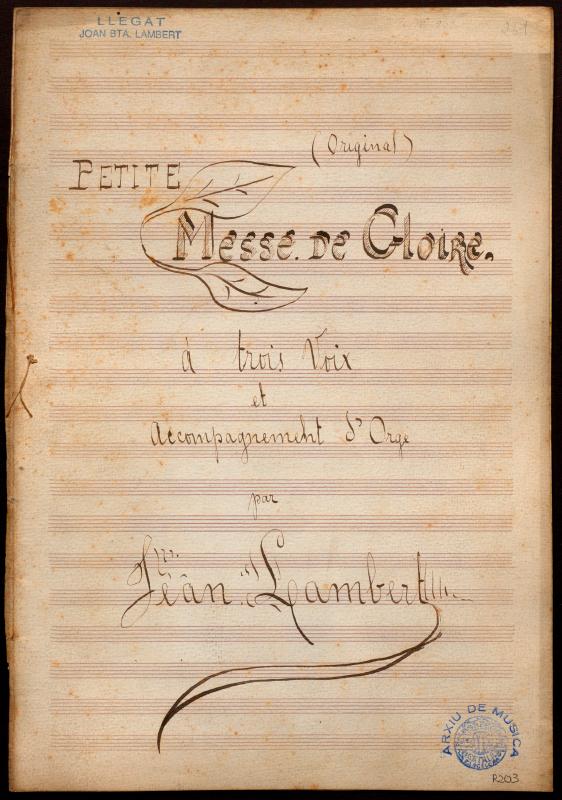 LLEGAT
JOAN BTA. LAMBERT
(Original)
PETITE
Messe. De Gloire.
à trois Voix
et
Accompagnement d'Orge
par
Jean Lambert
ARXIU DE MUSICA
R203